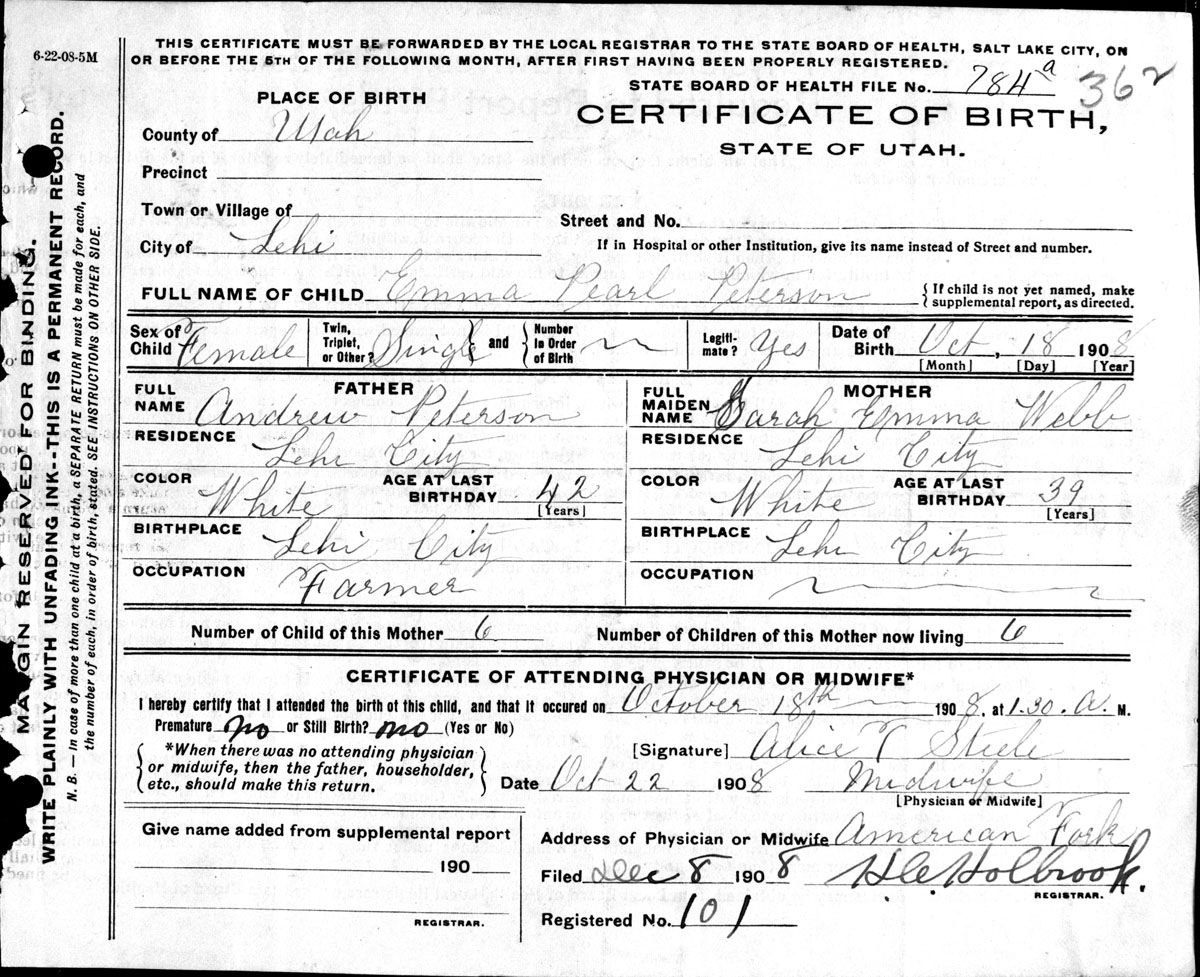 6-22-08-5M
THIS CERTIFICATE MUST BE FORWARDED BY THE LOCAL REGISTRAR TO THE STATE BOARD OF HEALTH, SALT LAKE CITY, ON
OR BEFORE THE 5TH OF THE FOLLOWING MONTH, AFTER FIRST HAVING BEEN PROPERLY REGISTERED.
STATE BOARD OF HEALTH FILE No. 784 a 362
PLACE OF BIRTH
CERTIFICATE OF BIRTH,
STATE OF UTAH.
County of Utah
Precinct
Town or Village of
Street and No.
City of Lehi
If in Hospital or other Institution, give its name instead of Street and number.
FULL NAME OF CHILD Emma Pearl Peterson { If child is not yet named, make supplemental report, as directed.
Sex of Child Female Twin, Triplet, or Other? Single and Number in Order of Birth Legiti- mate? Yes Date of Birth Oct, 18 1908
[Month] [Day] [Year]
FATHER
FULL NAME Andrew Peterson
RESIDENCE Lehi City
COLOR White AGE AT LAST BIRTHDAY 42 [Years]
BIRTHPLACE Lehi City
OCCUPATION Farmer
MOTHER
FULL MAIDEN NAME Sarah Emma Webb
RESIDENCE Lehi City
COLOR White AGE AT LAST BIRTHDAY 39 [Years]
BIRTHPLACE Lehi City
OCCUPATION
Number of Child of this Mother 6 Number of Children of this Mother now living 6
CERTIFICATE OF ATTENDING PHYSICIAN OR MIDWIFE*
I hereby certify that I attended the birth of this child, and that it occured on October 18th 1908, at 1.30. A. M.
Premature no or Still Birth? no (Yes or No)
*When there was no attending physician
or midwife, then the father, householder,
etc., should make this return.
[Signature] Alice T Steele
Date Oct 22 1908 Midwife
[Physician or Midwife]
Give name added from supplemental report
190
REGISTRAR.
Address of Physician or Midwife American Fork
Filed Dec 8 1908 H.C. Holbrook.
REGISTRAR.
Registered No. 101
MARGIN RESERVED FOR BINDING.
WRITE PLAINLY WITH UNFADING INK--THIS IS A PERMANENT RECORD.
N. B. — In case of more than one child at a birth, a SEPARATE RETURN must be made for each, and
the number of each, in order of birth, stated. SEE INSTRUCTIONS ON OTHER SIDE.